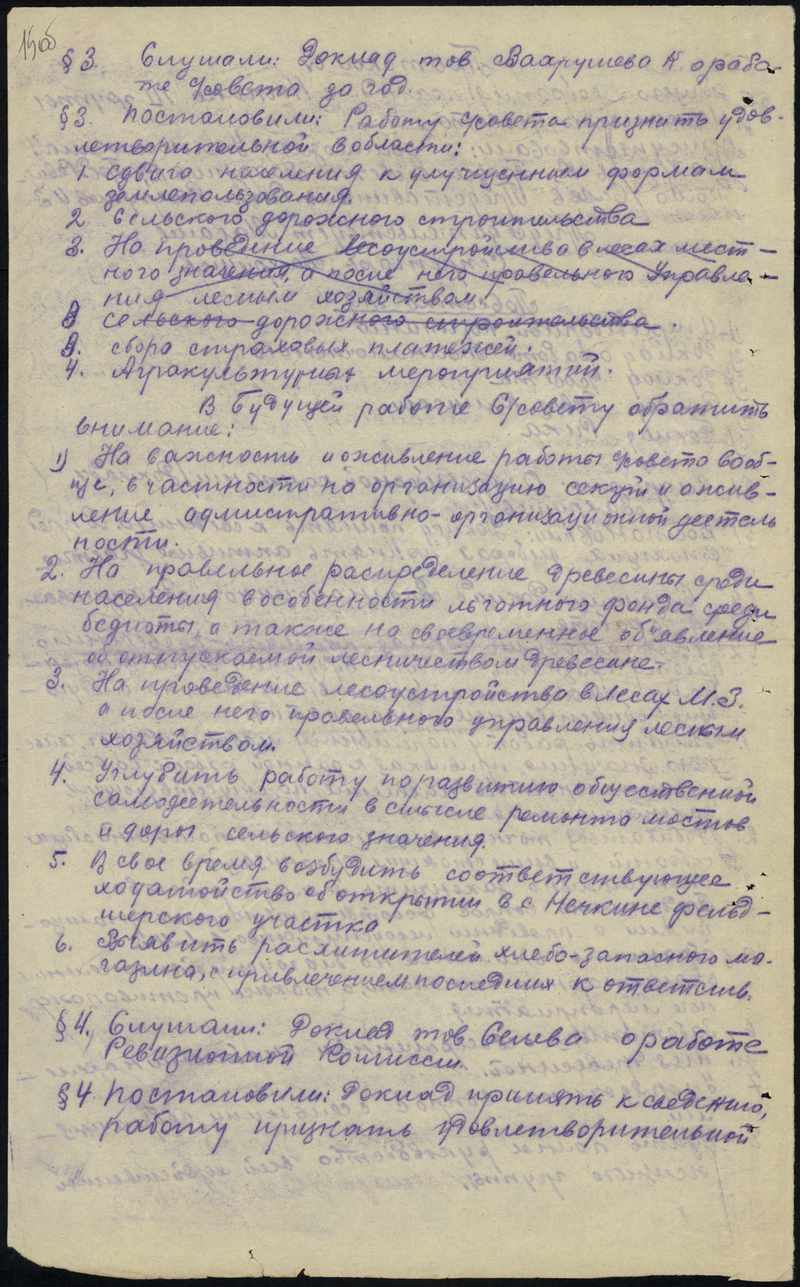 15об
§3. Слушали: Доклад тов Вахрушева А о рабо-
те с/совета за год.
§3. Постановили: Работу с/совета признить удов-
летворительной в области:
1. Сдвига населения к улучшенным формам
землепользования.
2 сельского дорожного строительства
3. На проведение лесоустройства в лесах мест-
ного значения, а после него правельного Управле-
ния лесным хозяйством.
3 сельского дорожного строительства.
3. сбора страховых платежей.
4. Агракультурных мероприятий.
В будущей работе С/совету обратить
внимание:
1) На важность и оживление работы с/совета вооб-
ще, в частности на организацию секций и ожив-
ление адмистративно-организационной деетель
ности.
2. На правельное распределение древесины среди
населения в особенности льготного фонда среди
бедноты, а также на своевременное об'явление
об отпускаемой лесничеством древесине.
3. На проведение лесоустройства в лесах М.З.
а после него правельного управления лесным
хозяйством.
4. Углубить работу по развитию общественной
самодеетельности в смысле ремонта мостов
и дорог сельского значения.
5. В свое время возбудить соответствующее
ходатойство об открытии в с Нечкине фельд-
шерского участка
6. Выявить расхитителей хлебо-запасного ма-
газина, с привлечением последних к ответств.
§4. Слушали: Доклад тов Селева о работе
Ревизионной Комиссии.
§4 Постановили: Доклад принять к сведению,
работу признать удовлетворительной